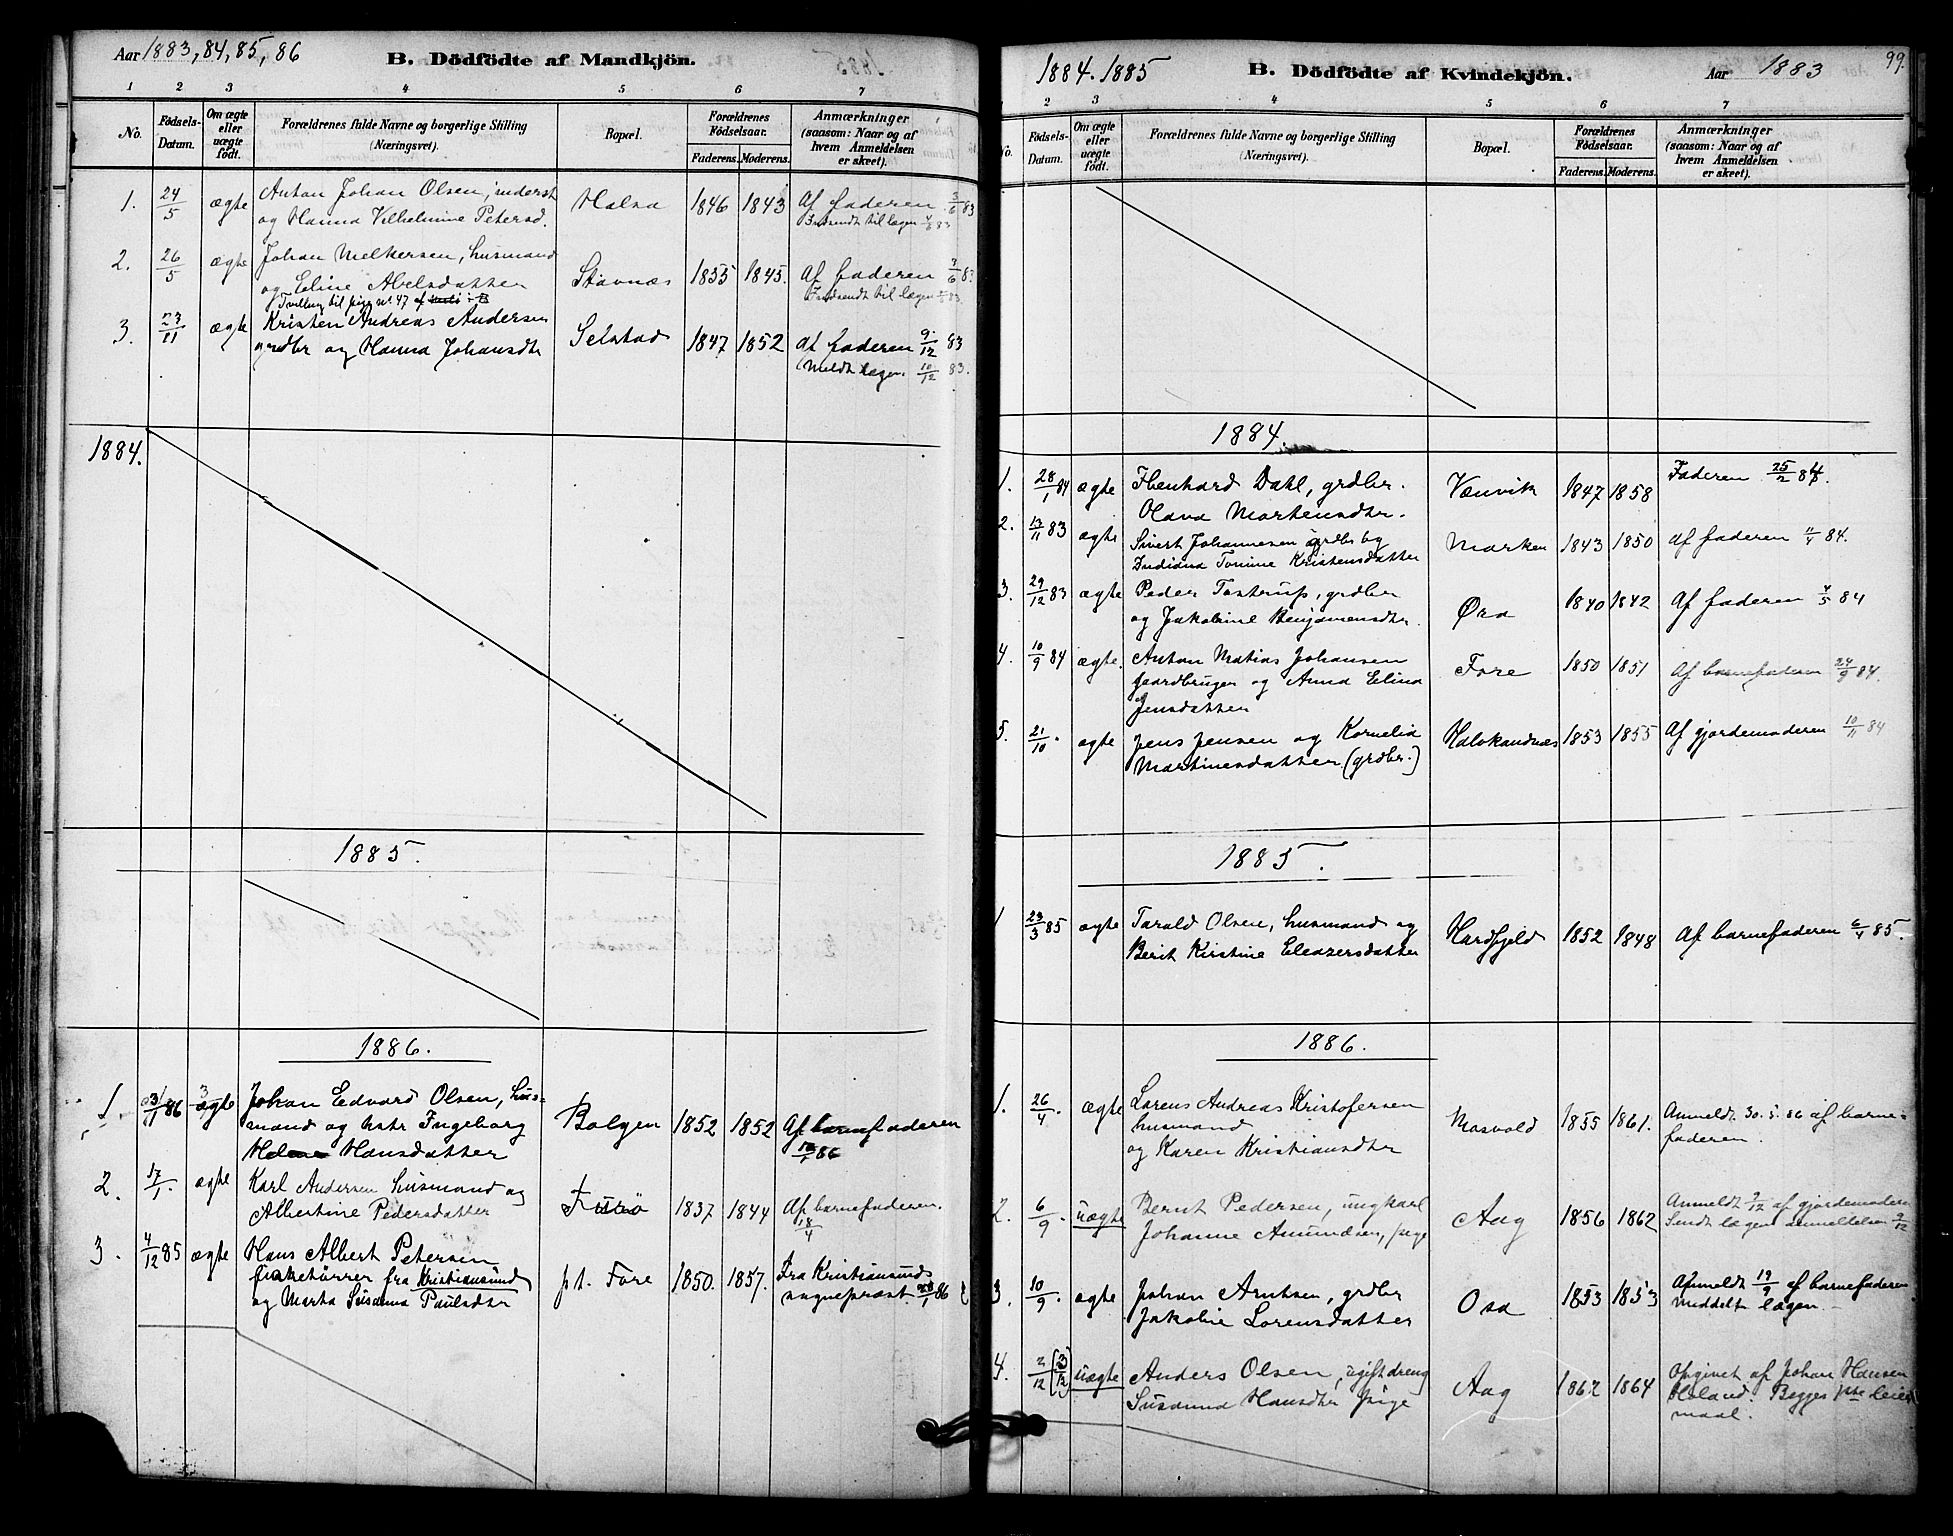 Aar 1883, 84, 85, 86
B. Dödfödte af Mandkjön.
1 2 3 4 5 6 7
No. Födsels-Datum. Om ægte eller uægte födt. Forældrenes fulde Navne og borgerlige Stilling (Næringsvei). Bopæl. Forældrenes Födselsaar. Faderens. Moderens. Anmærkninger (saasom: Naar og af hvem Anmeldelsen er skeet).
1. 24/5 ægte Anton Johan Olsen, inderst Halsa 1846 1843 Af faderen 3/6 83
og Hanna Vilhelmine Petersd. Indsendt til lægen 4/6 83
2. 26/5 ægte Johan Melkersen, husmand Stavnæs 1855 1845. Af faderen 3/6 83
og Eline Abelsdatter Indsendt til lægen
Tvilling til pige nr. 47
3. 23/11 ægte Kristen Andreas Andersen Selstad 1847 1852 af faderen 9/12 83
grdbr og Hanna Johansdtr Meldt lægen 10/12 83.
1884.
1885.
1886.
1. 31/1 86 ægte Johan Edvard Olsen, hus- Bolgen 1852 1852 Af barnefaderen
mand og hstr Ingeborg
Hansdatter
2. 17/1. ægte Karl Andersen husmand og 1837 1844 Af barnefaderen.
Albertine Pedersdatter 18/4
3. 4/12 85 ægte Hans Albert Petersen pt. Fore 1850. 1857. Fra Kristiansunds
fisketörrer fra Kristiansund sognepræst. 23/1 86
og Marta Susanna Paulsdtr
1884. 1885
B. Dödfödte af Kvindekjön.
Aar 1883
99.
2 3 4 5 6 7
No. Födsels-Datum. Om ægte eller uægte födt. Forældrenes fulde Navne og borgerlige Stilling (Næringsvei). Bopæl. Forældrenes Födselsaar. Faderens. Moderens. Anmærkninger (saasom: Naar og af hvem Anmeldelsen er skeet).
1884.
1. 28/1 84 ægte Ebenhard Dahl, grdbr. Vænvik 1847 1858 Faderen 25/2 84.
Olava Mortensdtr.
2. 13/11 83 ægte Sivert Johannesen grdbr og Marken 1843 1850 af faderen 84.
Indiana Tomine Kristensdatter
3. 29/12 83 ægte Peder Tostrup, grdbr Øra 1840 1842 Af faderen 4/5 84
og Jakobine Benjamensdtr.
4. 10/9 84 ægte. Anton Matias Johansen Fore 1850 1851 Af barnefaderen 24/9 84.
gaardbruger og Anna Elina
Jensdatter
5. 21/10. ægte Jens Jensen og Kornelia Halskandnæs 1853 1855 Af gjordemoderen 10/11 84
Martinesdatter (grdbr.)
1885.
1 23/3 85 ægte Tarald Olsen, husmand og Hardfjeld 1852 1848 Af barnefaderen 6/4 85.
Berit Kirstine Eleazersdatter
1886.
1. 26/4. ægte Lorens Andreas Kristofersen Masvold 1855 1861. Anmeldt 30.5.86 af barne-
husmand faderen.
og Karen Kristiansdtr
2. 6/9. uægte Bernt Pedersen, ungkarl Aag 1856 1862 Anmeldt 9/12 af gjordemoderen
Johanne Amundsen, pige Sendt lægen anmeldelsen 9/12
3. 10/9. ægte Johan Arntsen, grdbr Osa 1853 1853 Anmeldt 19/9 af barnefaderen
Jakobine Lorensdatter Meddelt lægen.
4. 2/12 (3/12) uægte Anders Olsen, ugift dreng Aag 1862 1864 Opgivet af Johan Hansen
Susanna Hansdtr pige Høland. Begges 1ste leier-
maal.